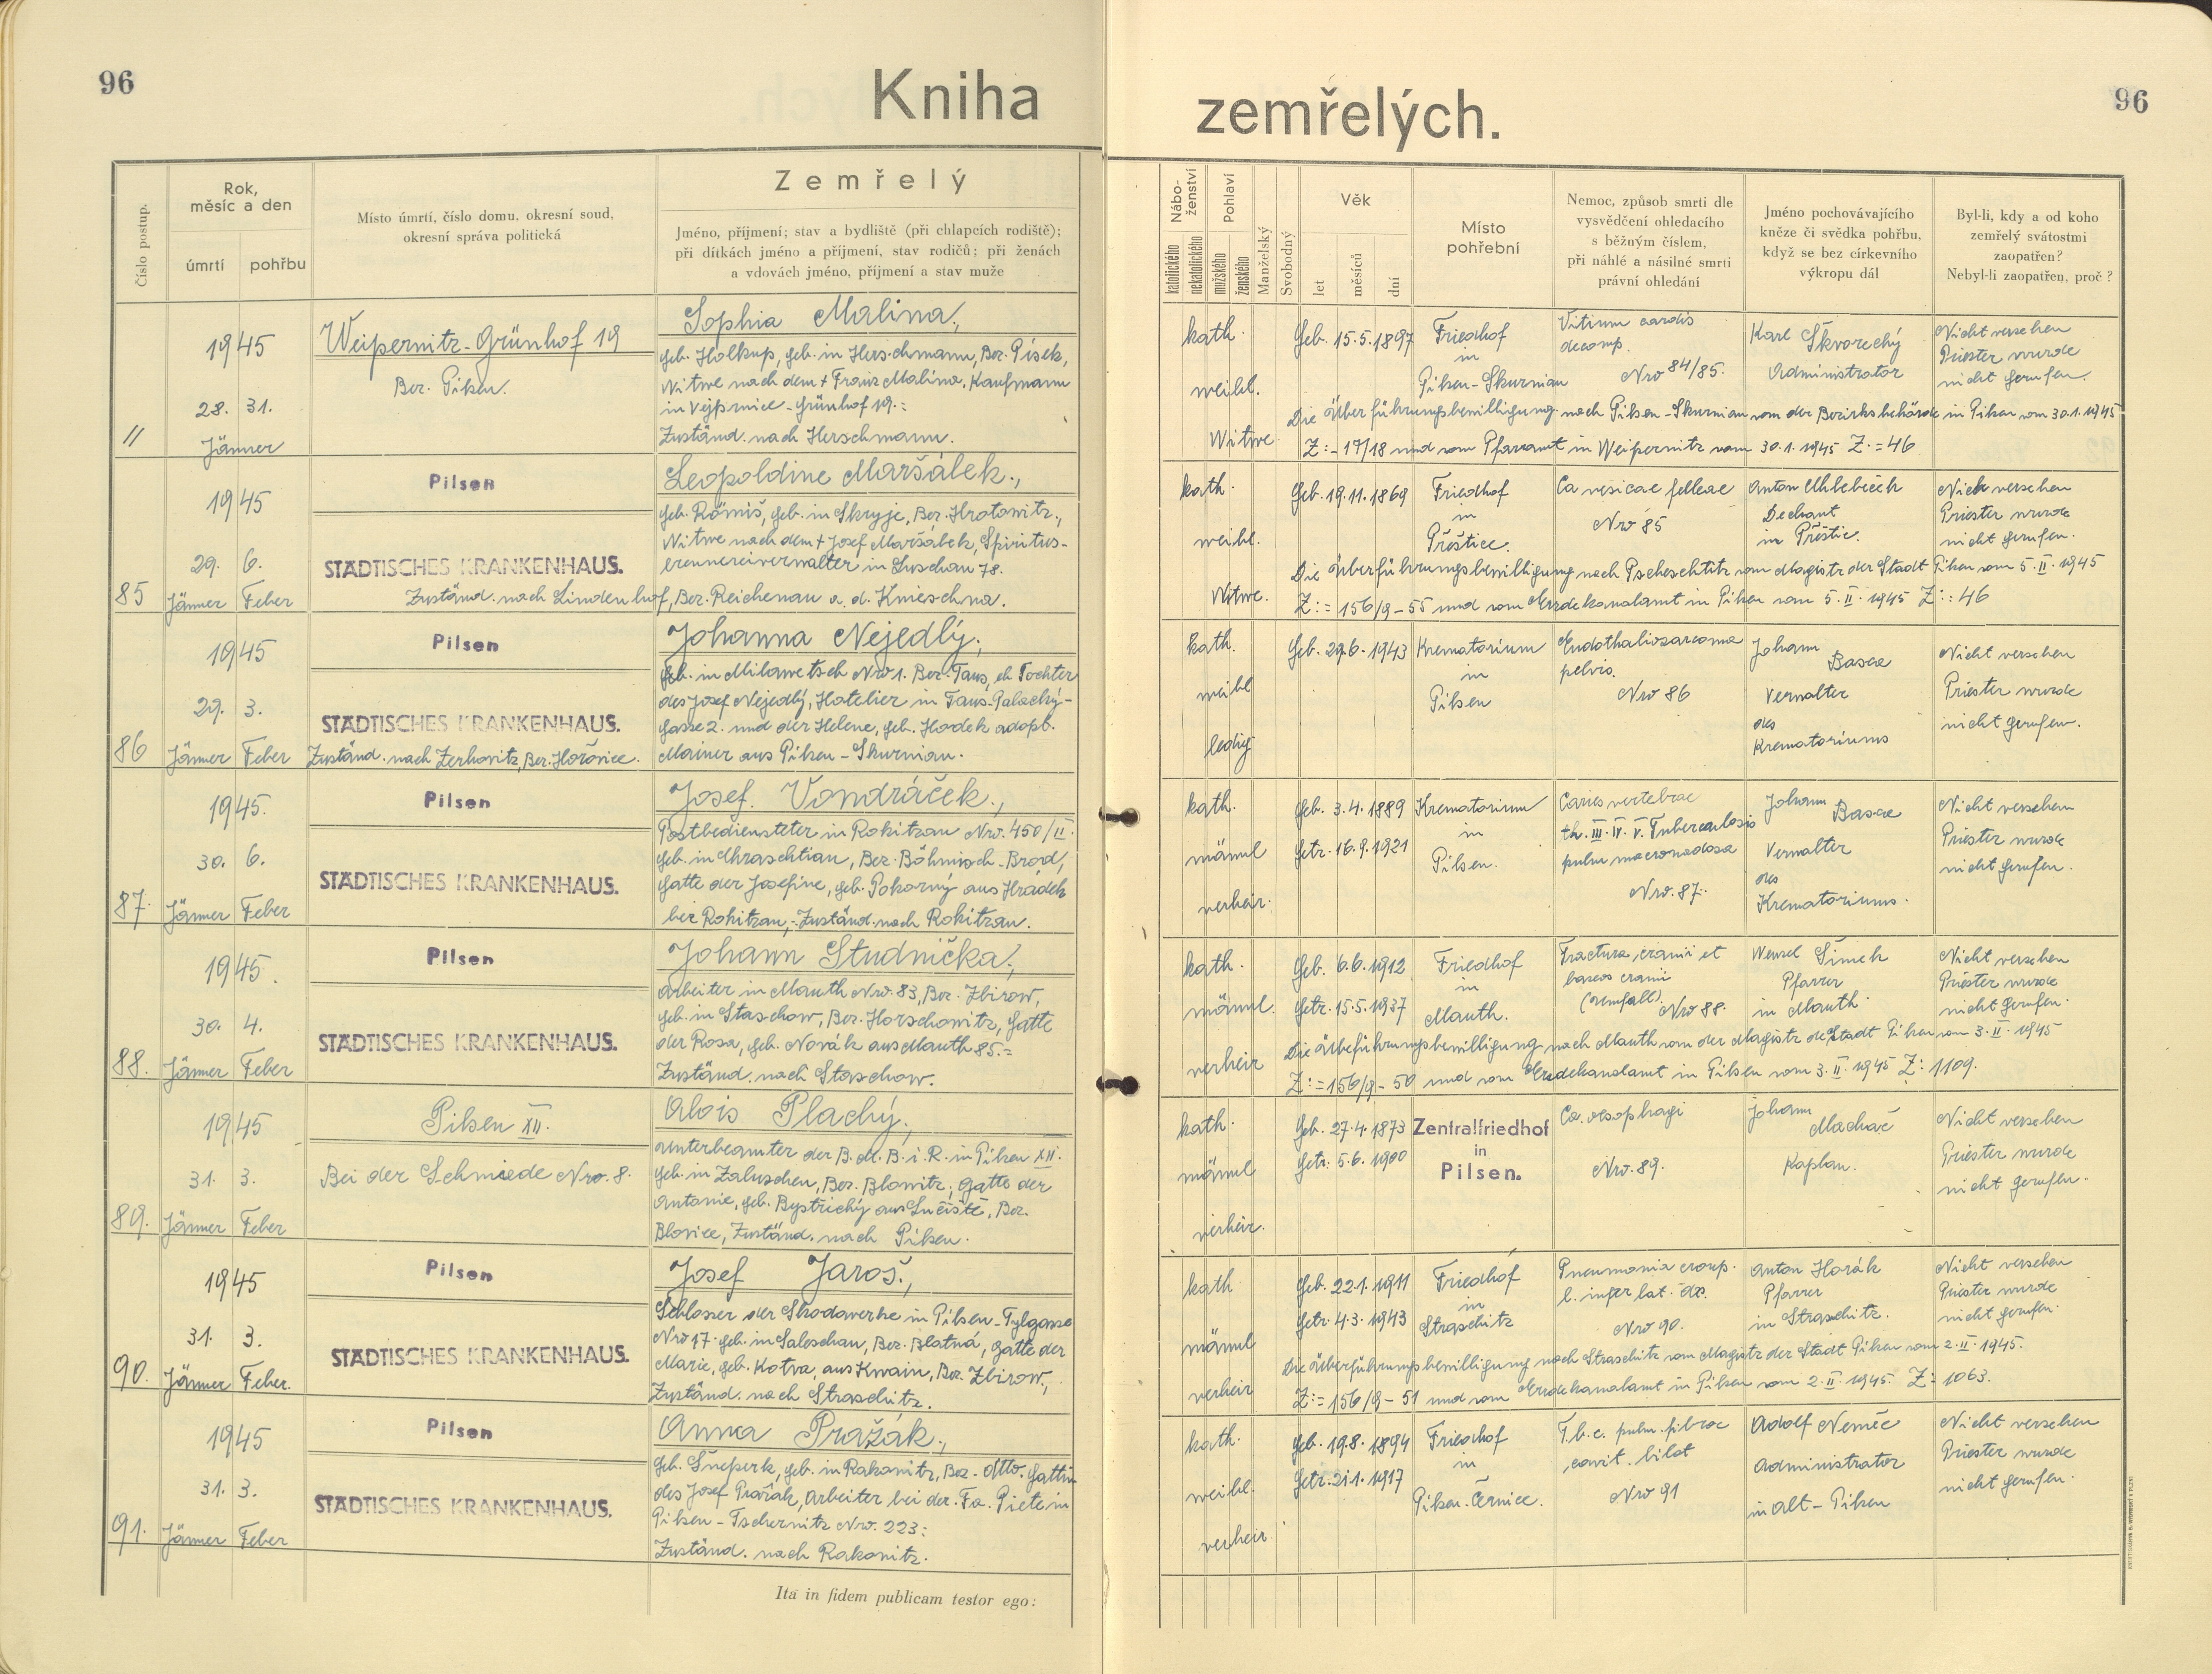 96
Kniha
zemřelých.
96
Číslo postup.
Rok,
měsíc a den
úmrtí
pohřbu
Místo úmrtí, číslo domu, okresní soud,
okresní správa politická
Zemřelý
Jméno, příjmení; stav a bydliště (při chlapcích rodiště);
při dítkách jméno a příjmení, stav rodičů; při ženách
a vdovách jméno, příjmení a stav muže
Nábo-
ženství
katolického
nekatolického
Pohlaví
mužského
ženského
Manželský
Svobodný
Věk
let
měsíců
dní
Místo
pohřební
Nemoc, způsob smrti dle
vysvědčení ohledacího
s běžným číslem,
při náhlé a násilné smrti
právní ohledání
Jméno pochovávajícího
kněze či svědka pohřbu,
když se bez církevního
výkropu dál
Byl-li, kdy a od koho
zemřelý svátostmi
zaopatřen?
Nebyl-li zaopatřen, proč?
//
1945
28. 31.
Jänner
Weipernitz-Grünhof 19
Bez. Pilsen.
Sophia Malina,
geb. Holkup, geb. in Herschmann, Bez. Písek,
Witwe nach dem + Franz Malina, Kaufmann
in Vejprnice-Grünhof 19.=
Zuständ. nach Herschmann.
kath.
weibl.
Witwe
Geb. 15.5.1897
Friedhof
in
Pilsen-Skurnian
Vitium cordis
decomp.
Nro 84/85.
Karl Škvorechý
Administrator
Nicht versehen
Priester wurde
nicht gerufen.
Die Überführungsbewilligung nach Pilsen-Skurnian von der Bezirksbehörde in Pilsen vom 30.1.1945
Z:-17/18 und vom Pfarramt in Weipernitz vom 30.1.1945 Z:=46
85
1945
29. 6.
Jänner Feber
Pilsen
STÄDTISCHES KRANKENHAUS.
Leopoldine Maršálek.,
geb. Römiš, geb. in Skryje, Bez. Hrotowitz.,
Witwe nach dem + Josef Maršálek, Spiritus-
brennereiverwalter in Luschau 78.
Zuständ. nach Lindenhof, Bez. Reichenau a. d. Knieschna.
kath.
weibl.
Witwe.
Geb. 19.11.1869
Friedhof
in
Přeštice.
Ca vesicae felleae
Nro 85
Anton Uhlebeček
Dechant
in Přeštic.
Nicht versehen
Priester wurde
nicht gerufen.
Die Überführungsbewilligung nach Pscheschtitz vom Magistr der Stadt Pilsen vom 5.II.1945
Z:=156/9-55 und vom Erzdekanalamt in Pilsen vom 5.II.1945 Z:=46
86
1945
29. 3.
Jänner Feber
Pilsen
STÄDTISCHES KRANKENHAUS.
Zuständ. nach Zerhovitz, Bez. Hořovice.
Johanna Nejedlý,
geb. in Milawetsch Nro 1. Bez. Taus, eh Tochter
des Josef Nejedlý, Hotelier in Taus-Palacký-
gasse 2. und der Helene, geb. Hodek adopt.
Mainer aus Pilsen-Skurnian.
kath.
weibl
ledig
Geb. 29.6.1943
Krematorium
in
Pilsen
Endotheliosarcoma
pelvis.
Nro 86
Johann
Basca
Verwalter
des
Krematoriums
Nicht versehen
Priester wurde
nicht gerufen.
87.
1945.
30. 6.
Jänner Feber
Pilsen
STÄDTISCHES KRANKENHAUS.
Josef Vondráček.,
Postbediensteter in Rokitzan Nro. 450/II.
geb. in Chraschtian, Bez. Böhmisch-Brod,
Gatte der Josefine, geb. Pokorný aus Hrádek
bei Rokitzan,-Zuständ. nach Rokitzan.
kath.
männl
verheir.
Geb. 3.4.1889
Getr. 16.9.1921
Krematorium
in
Pilsen.
Caries vertebrae
th. III. IV. V. Tuberculosis
pulm macronodosa
Nro. 87.
Johann
Basca
Verwalter
des
Krematoriums.
Nicht versehen
Priester wurde
nicht gerufen.
88.
1945.
30. 4.
Jänner Feber
Pilsen
STÄDTISCHES KRANKENHAUS.
Johann Studnička,
Arbeiter in Mauth Nro. 83, Bez. Zbirow,
geb. in Staschow, Bez. Horschowitz, Gatte
der Rosa, geb. Novák aus Mauth 85.=
Zuständ. nach Staschow.
kath.
männl.
verheir
Geb. 6.6.1912
Getr. 15.5.1937
Friedhof
in
Mauth.
Fractura cranii et
baseos cranii
(Unfall).
Nro 88.
Wenzel Šimek
Pfarrer
in Mauth.
Nicht versehen
Priester wurde
nicht gerufen.
Die Überführungsbewilligung nach Mauth von der Magistr der Stadt Pilsen vom 3.II.1945
Z:=156/9-50 und vom Erzdekanalamt in Pilsen vom 3.II.1945 Z: 1109.
89.
1945
31. 3.
Jänner Feber
Pilsen XII.
Bei der Schmiede Nro. 8.
Alois Plachý,
Unterbeamter der B.M.B. i. R. in Pilsen XII.
geb. in Zaluschen, Bez. Blowitz, Gatte der
Antonie, geb. Bystřichý aus Lučiště, Bez.
Blovice, Zuständ. nach Pilsen.
kath.
männl
verheir.
Geb. 27.4.1873
Getr. 5.6.1900
Zentralfriedhof
in
Pilsen.
Ca. oesophagi
Nro. 89.
Johann
Machač
Kaplan.
Nicht versehen
Priester wurde
nicht gerufen.
90.
1945
31. 3.
Jänner Feber.
Pilsen
STÄDTISCHES KRANKENHAUS.
Josef Jaroš.,
Schlosser der Skodawerke in Pilsen-Tylgasse
Nro 17. geb. in Saleschau, Bez. Blatná, Gatte der
Marie, geb. Kotva, aus Kwain, Bez. Zbirow,
Zuständ. nach Straschitz.
kath
männl
verheir
Geb. 22.1.1911
Getr. 4.3.1943
Friedhof
in
Straschitz
Pneumonia croup.
l. infer lat. dx.
Nro 90.
Anton Horák
Pfarrer
in Straschitz.
Nicht versehen
Priester wurde
nicht gerufen.
Die Überführungsbewilligung nach Straschitz vom Magistr der Stadt Pilsen vom 2.II.1945.
Z:=156/9-51 und vom Erzdekanalamt in Pilsen vom 2.II.1945. Z: 1063.
91.
1945
31. 3.
Jänner Feber
Pilsen
STÄDTISCHES KRANKENHAUS.
Anna Pražák.,
geb. Šneperk, geb. in Rakonitz, Bez. dtto. Gattin
des Josef Pražák, Arbeiter bei der Fa. Piete in
Pilsen-Tschernitz Nro. 223:
Zuständ. nach Rakonitz.
kath.
weibl.
verheir
Geb. 19.8.1894
Getr. 21.1.1917
Friedhof
in
Pilsen-Černice.
T.b.c. pulm. fibroc
cavit. bilat
Nro 91
Adolf Neměc
Administrator
in Alt-Pilsen
Nicht versehen
Priester wurde
nicht gerufen.
Ita in fidem publicam testor ego: